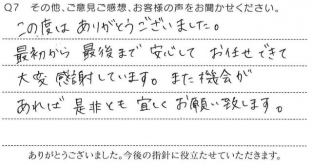 Q7 その他、ご意見ご感想、お客様の声をお聞かせください。
この度は ありがとうございました。
最初から 最後まで 安心して お任せできて
大変 感謝しています。また 機会が
あれば 是非とも 宜しく お願い致します。
ありがとうございました。今後の指針に役立たせていただきます。